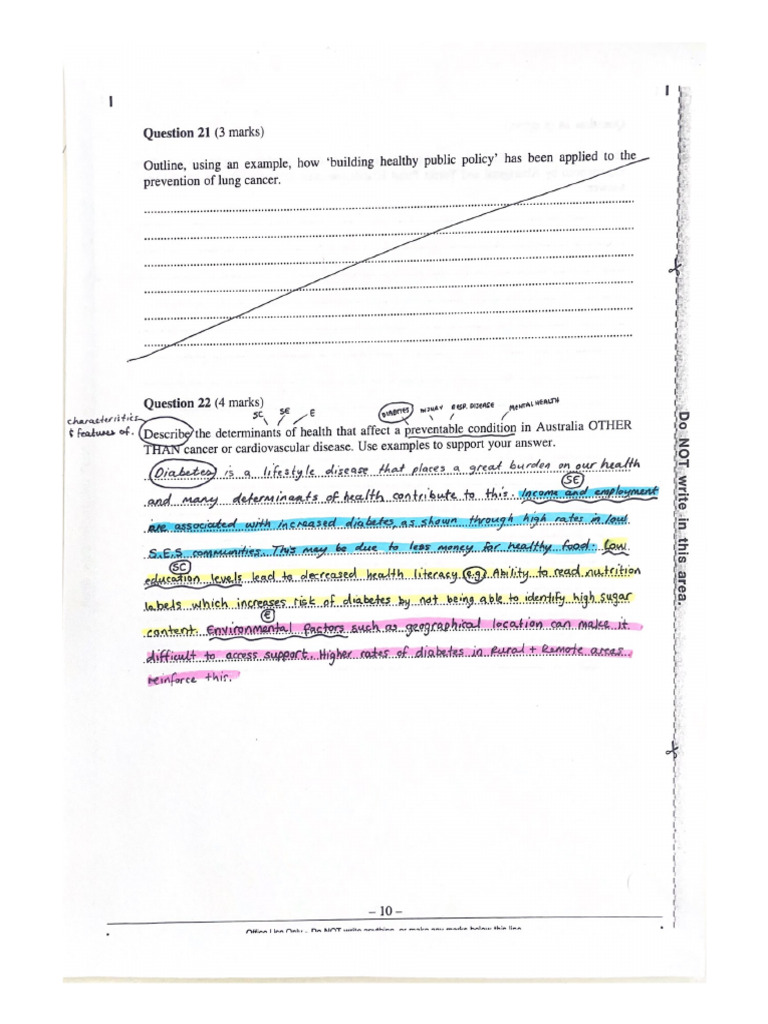 Question 21 (3 marks)
Outline, using an example, how 'building healthy public policy' has been applied to the
prevention of lung cancer.
Question 22 (4 marks)
SC SE E DIABETES INJURY RESP. DISEASE MENTAL HEALTH
characteristics
& features of.
Describe the determinants of health that affect a preventable condition in Australia OTHER
THAN cancer or cardiovascular disease. Use examples to support your answer.
Diabetes is a lifestyle disease that places a great burden on our health
SE
and many determinants of health contribute to this. Income and employment
are associated with increased diabetes, as shown through high rates in low
S.E.S communities. This may be due to less money for healthy food. Low
SC
education levels lead to decreased health literacy (e.g) Ability to read nutrition
labels which increases risk of diabetes by not being able to identify high sugar
E
content. Environmental factors such as geographical location can make it
difficult to access support. Higher rates of diabetes in Rural + Remote areas
reinforce this.
Do NOT write in this area.
– 10 –
Office Use Only - Do NOT write anything, or make any marks below this line